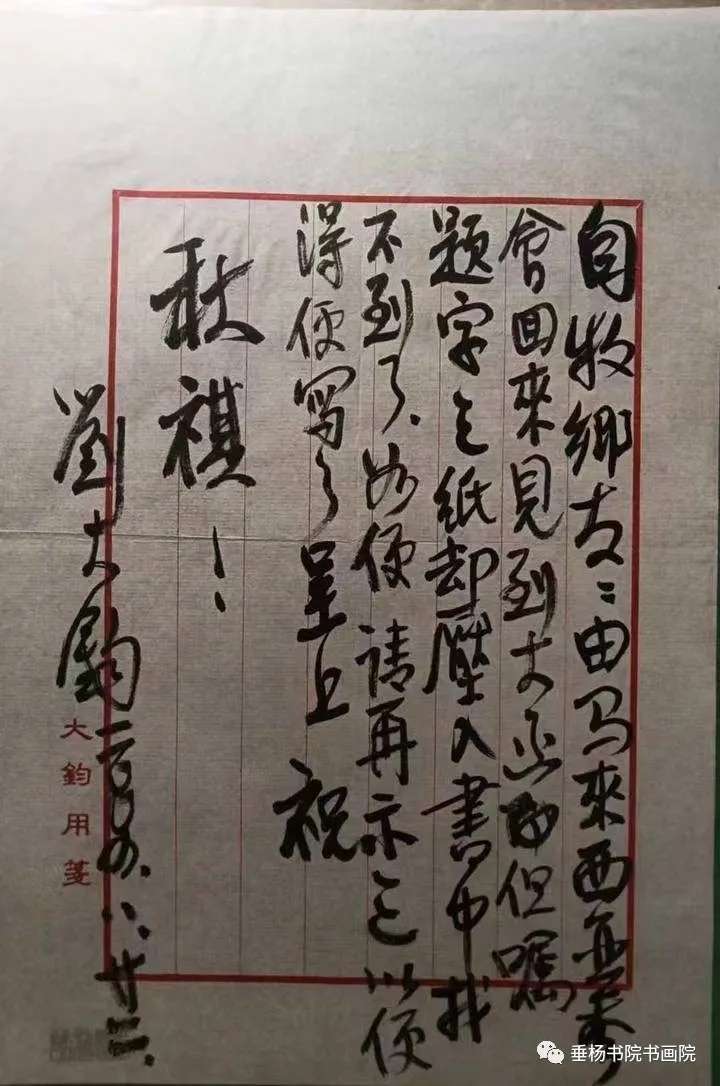 自牧乡友：由马来西亚
會回來見到大函但嘱
题字之纸却壓入書中找
不到了、如便请再示之以便
得便寫了呈上 祝
秋祺！
劉大鈞 二〇〇四、八、廿二、
大鈞用箋
垂杨书院书画院